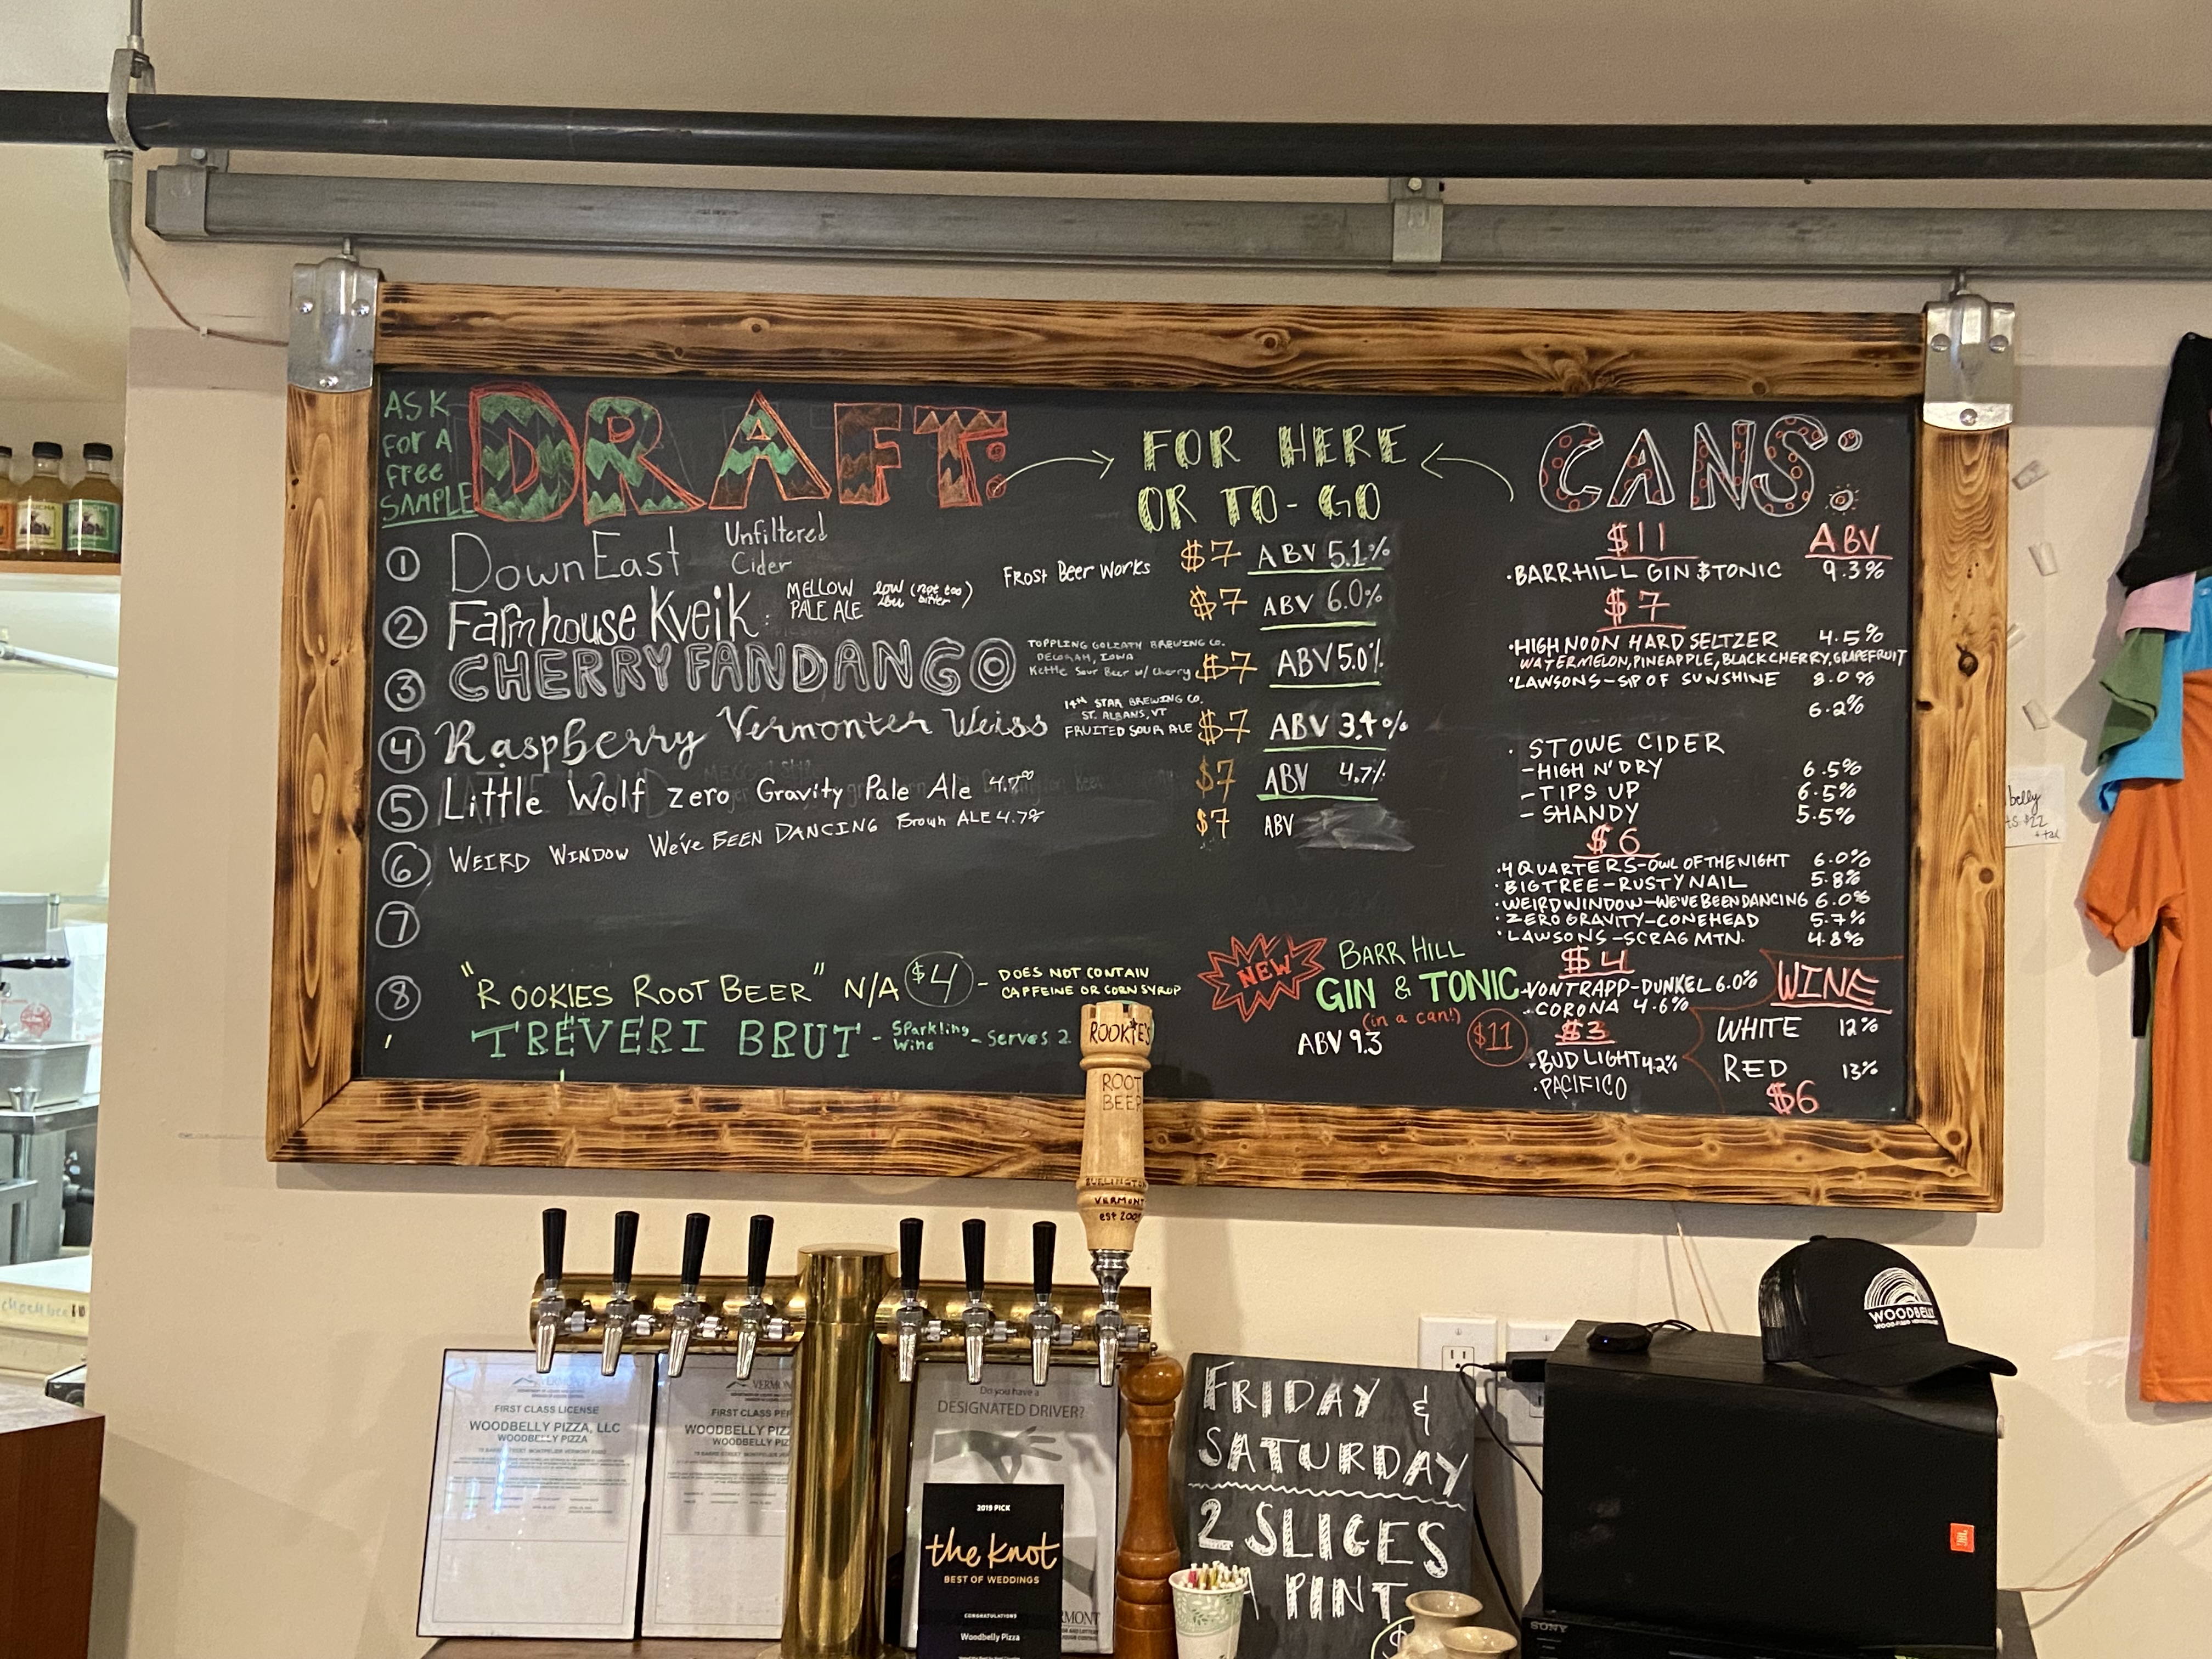 ASK
FOR A
Free
SAMPLE
DRAFT:
FOR HERE
OR TO-GO
CANS:
① DownEast Unfiltered Cider $7 ABV 5.1%
② Farmhouse Kveik MELLOW PALE ALE low Ibu (not too bitter) Frost Beer Works $7 ABV 6.0%
③ CHERRY FANDANGO TOPPLING GOLIATH BREWING CO. DECORAH, IOWA Kettle Sour Beer w/ Cherry $7 ABV 5.0%
④ Raspberry Vermonter Weiss 14th STAR BREWING CO. ST. ALBANS, VT FRUITED SOUR ALE $7 ABV 3.4%
⑤ Little Wolf Zero Gravity Pale Ale 4.7% $7 ABV 4.7%
⑥ WEIRD WINDOW We've BEEN DANCING Brown ALE 4.7% $7 ABV
⑦
⑧ "ROOKIES ROOT BEER" N/A $4 - DOES NOT CONTAIN CAFFEINE OR CORN SYRUP
TREVERI BRUT - Sparkling Wine - Serves 2
NEW
BARR HILL
GIN & TONIC
(in a can!)
ABV 9.3
$11
$11 ABV
·BARRHILL GIN $ TONIC 9.3%
$7
·HIGH NOON HARD SELTZER 4.5%
WATERMELON, PINEAPPLE, BLACK CHERRY, GRAPEFRUIT
·LAWSONS-SIP OF SUNSHINE 8.0%
6.2%
· STOWE CIDER
-HIGH N' DRY 6.5%
-TIPS UP 6.5%
-SHANDY 5.5%
$6
·4 QUARTERS-OWL OF THE NIGHT 6.0%
·BIG TREE-RUSTY NAIL 5.8%
·WEIRD WINDOW-WE'VE BEEN DANCING 6.0%
·ZERO GRAVITY-CONEHEAD 5.7%
·LAWSONS-SCRAG MTN. 4.8%
$4
·VONTRAPP-DUNKEL 6.0%
·CORONA 4.6%
$3
·BUD LIGHT 4.2%
·PACIFICO
WINE
WHITE 12%
RED 13%
$6
ROOKIE'S
ROOT
BEER
BURLINGTON
VERMONT
belly
$22
+ tax
FIRST CLASS LICENSE
WOODBELLY PIZZA, LLC
WOODBELLY PIZZA
VERMONT
FIRST CLASS
WOODBELLY
WOODBELLY PIZZA
Do you have a
DESIGNATED DRIVER?
2019 PICK
the knot
BEST OF WEDDINGS
CONGRATULATIONS
Woodbelly Pizza
FRIDAY &
SATURDAY
2 SLICES
A PINT
$
WOODBELLY
JBL
SONY